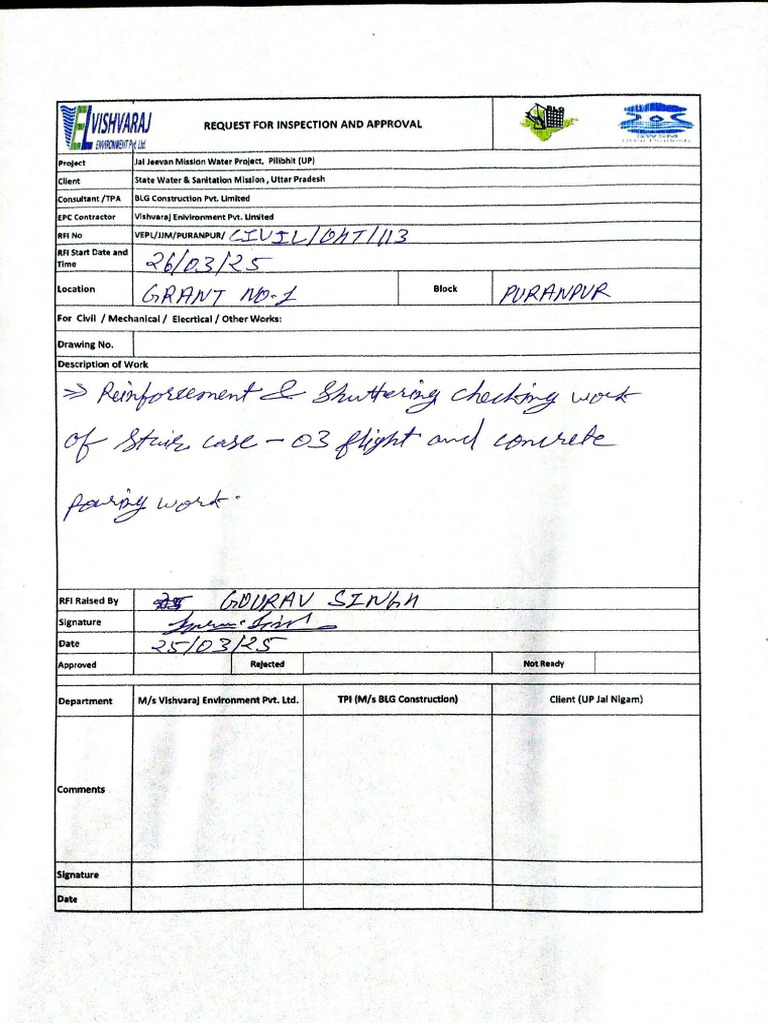 VISHVARAJ
ENVIRONMENT Pvt. Ltd.
REQUEST FOR INSPECTION AND APPROVAL
SWSM
Project Jal Jeevan Mission Water Project, Pilibhit (UP)
Client State Water & Sanitation Mission , Uttar Pradesh
Consultant /TPA BLG Construction Pvt. Limited
EPC Contractor Vishvaraj Enivironment Pvt. Limited
RFI No VEPL/JJM/PURANPUR/ CIVIL/OHT/113
RFI Start Date and Time 26/03/25
Location GRANT NO-1 Block PURANPUR
For Civil / Mechanical / Elecrtical / Other Works:
Drawing No.
Description of Work
⇒ Reinforcement & Shuttering checking work
of Stair case – 03 flight and concrete
pouring work.
RFI Raised By GOURAV SINGH
Signature
Date 25/03/25
Approved Rejected Not Ready
Department M/s Vishvaraj Environment Pvt. Ltd. TPI (M/s BLG Construction) Client (UP Jal Nigam)
Comments
Signature
Date